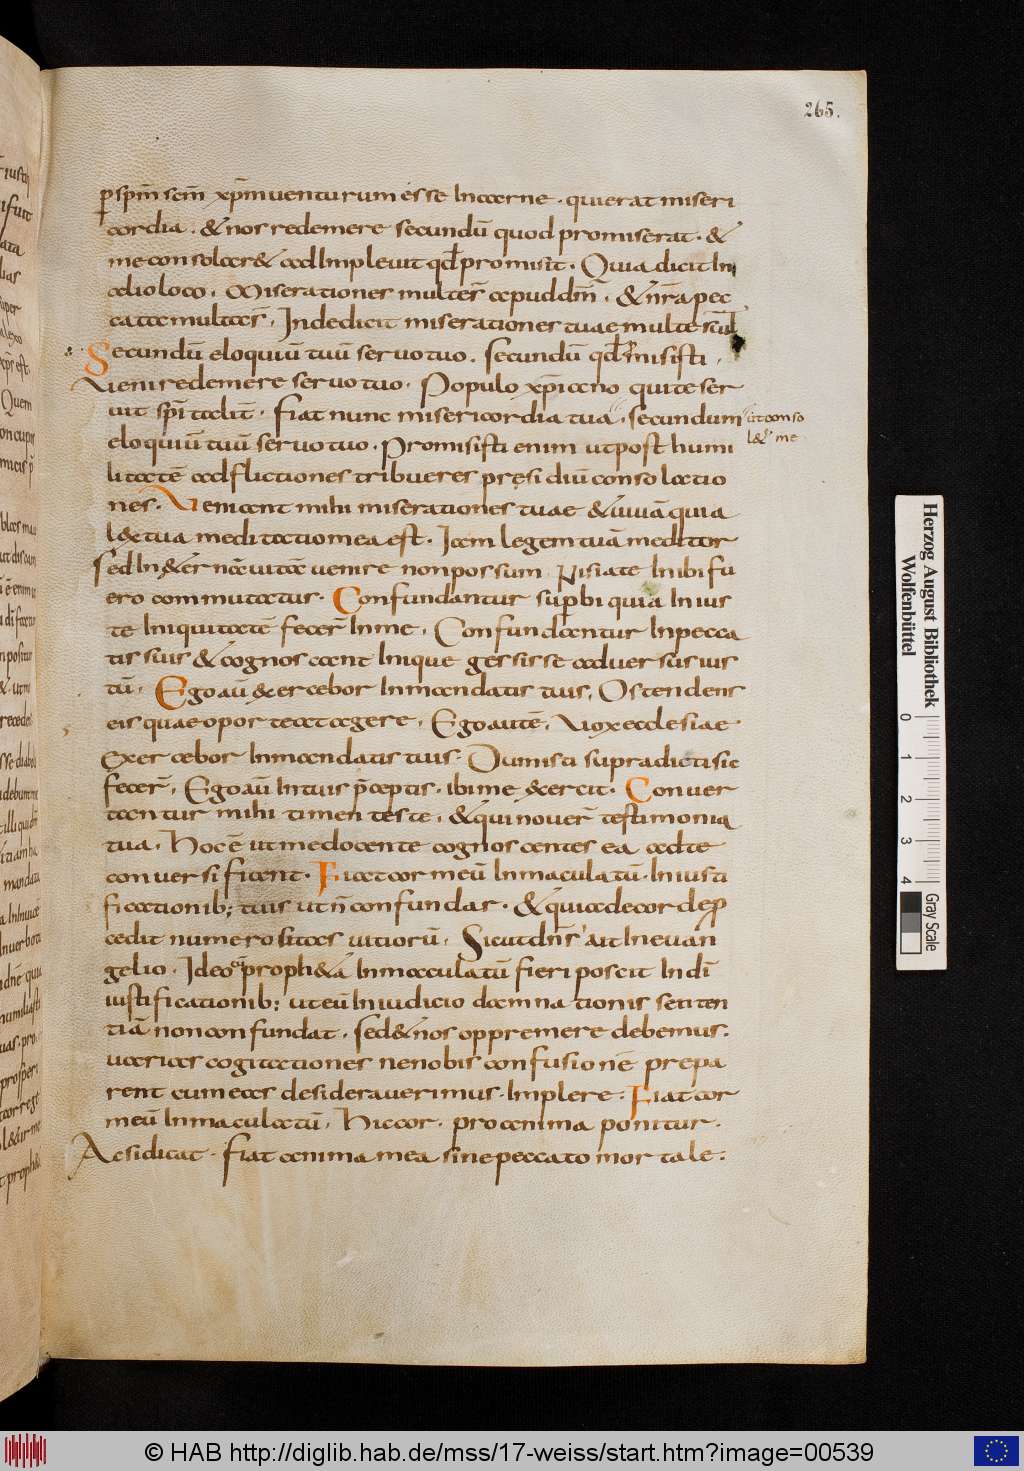 265.
p̲ spm̄ scm̄ xp̄m uenturum esse In carne · qui erat miseri
cordia · & nos redemere secundū quod promiserat · &
me consolar& ad Impleuit qd̄ promisit · Quia dicit In
alio loco · Miserationes multe sr̄ apud dm̄ · & nr̄a pec
cata multa s̄ · Inde dicit miserationes tuae multe
Secundū eloquiū tuū seruo tuo · secundū qd̄ misisti ·
Ueni redemere seruo tuo · Populo xp̄iano qui te ser
uit sp̄italit̄ · fiat nunc misericordia tua · secundum
ut conso
l&ur me
eloquiū tuū seruo tuo · Promisisti enim ut post humi
litatē adflictiones tribueres pręsidiū consolatio
nes · Ueniant mihi miserationes tuae & uiuā quia
l&x tua meditatio mea est · Iam legem tuā meditor
sed In &ernā uitā uenire non possum · Nisi a te In ibi fu
ero commutatus · Confundantur supbi quia Inius
te Iniquitatē fecer̄ In me · Confundantur In pecca
tis suis & cognoscant Inique gessisse aduersus ius
tū · Ego aū &xercebor In mandatis tuis · Ostendens
eis quae oporteat agere · Ego autē · Uox ecclesiae
Exercebor In mandatis tuis · Dum isti supradicti sic
fecer̄ · Ego aū In tuis p̄ceptis · ibi me &xercit · Conuer
tantur mihi timentes te · & qui nouer̄ testimonia
tua · Hoc ē ut me docente cognoscentes ea ad te
conuersi fiant · Fiat cor meū Inmaculatū · In iusti
ficationib; tuis ut n̄ confundar · & quia de corde p̲
cedit numerositas uitiorū · Sicut dn̄s ait In euan
gelio · Ideo proph&a Inmaculatū fieri poscit In dī
iustificationib; ut eū In iudicio damnationis senten
tiā non confundat · sed & nos oppremere debemus ·
uarias cogitationes ne nobis confusionē prepa
rent cum eas desiderauerimus · Implere · Fiat cor
meū Inmaculatū · Hic cor · pro anima ponitur ·
Ac si dicat · fiat anima mea sine peccato mortale :
Herzog August Bibliothek
Wolfenbüttel
0 1 2 3 4
Gray Scale
© HAB http://diglib.hab.de/mss/17-weiss/start.htm?image=00539